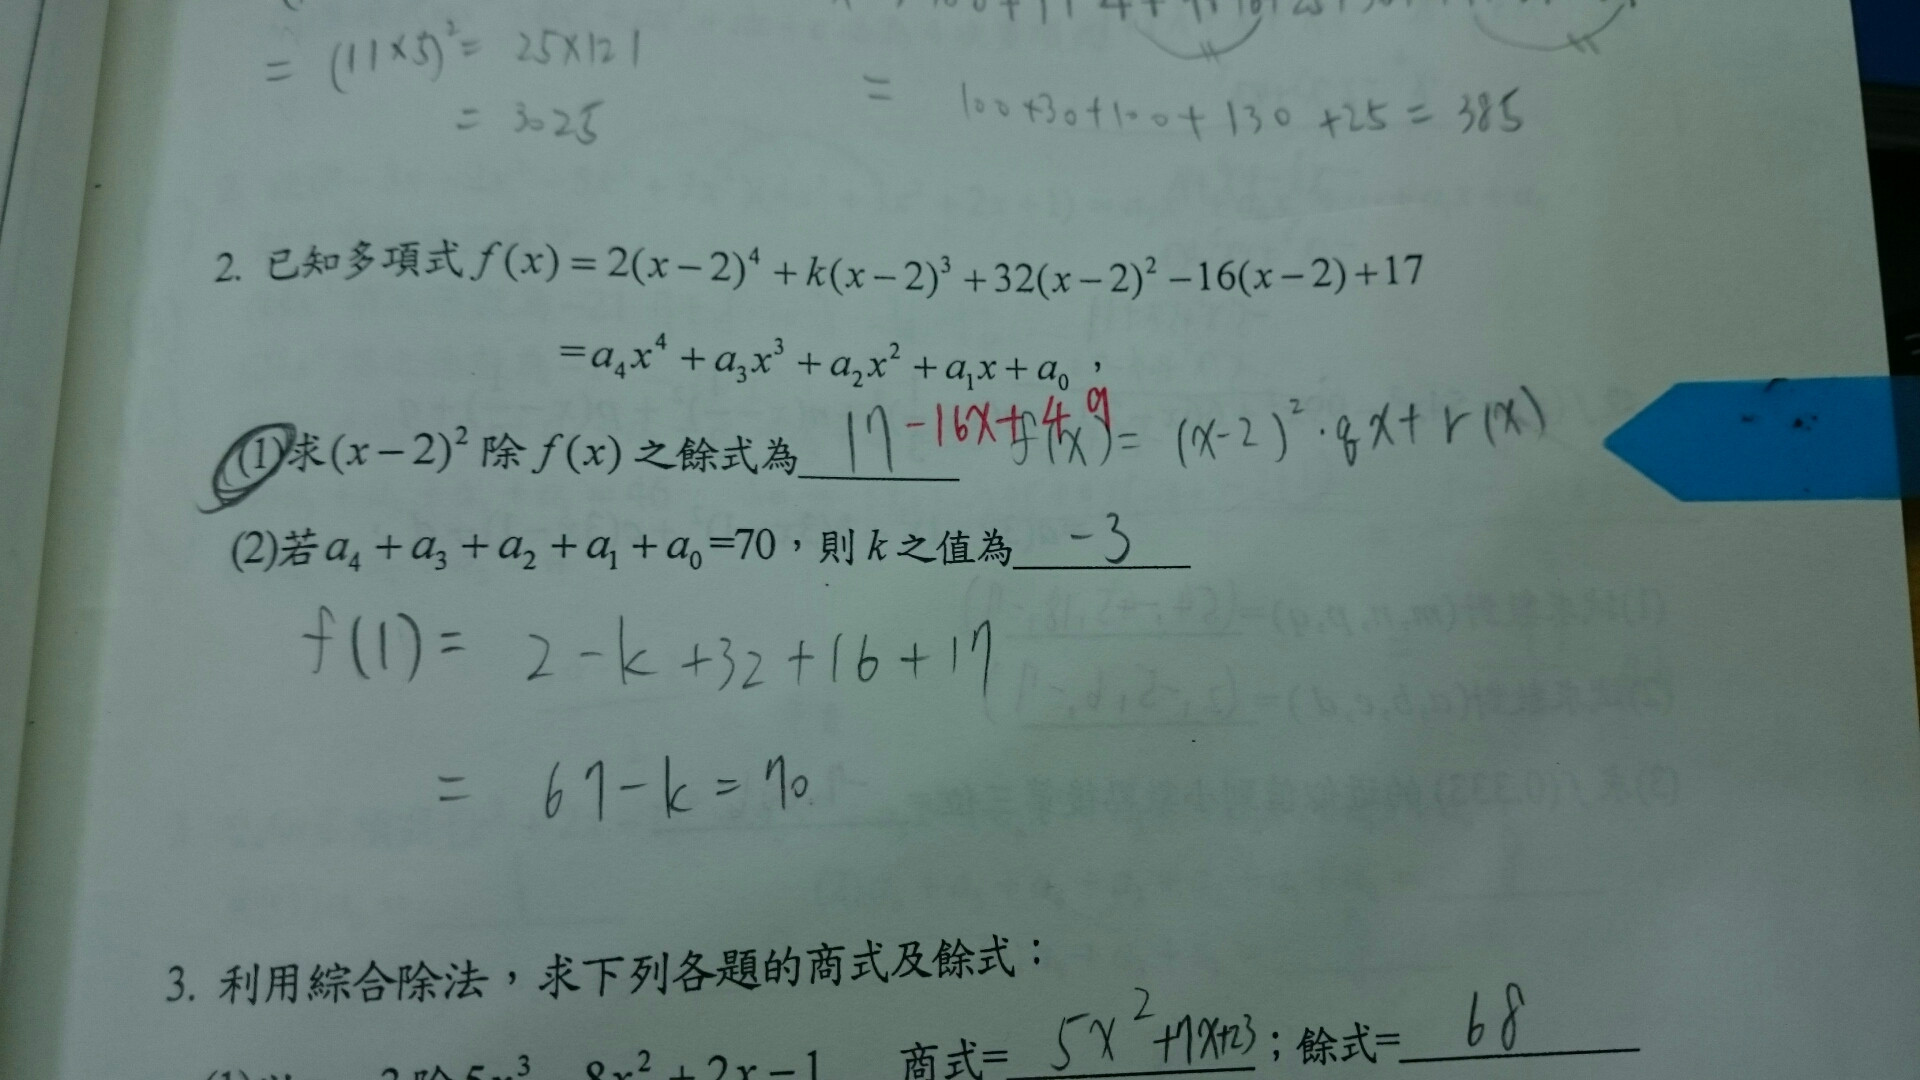 = (11×5)² = 25×121
= 3025
= 100+30+100+130+25 = 385
2. 已知多項式 f(x) = 2(x−2)⁴ + k(x−2)³ + 32(x−2)² − 16(x−2) + 17
= a₄x⁴ + a₃x³ + a₂x² + a₁x + a₀，
(1)求(x−2)² 除 f(x) 之餘式為 17 −16x+49 f(x) = (x-2)²·qx+r(x)
(2)若 a₄ + a₃ + a₂ + a₁ + a₀ =70，則 k 之值為 -3
f(1) = 2-k+32+16+17
= 67-k = 70
3. 利用綜合除法，求下列各題的商式及餘式：
商式= 5x²+7x+23；餘式= 68